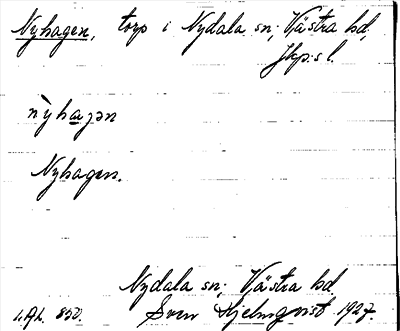 Nyhagen, torp i Nydala sn; Västra hd,
Jkp:s l.
nỳhaɡən
Nyhagen.
Nydala sn; Västra hd.
Sven Hjelmqvist 1927.